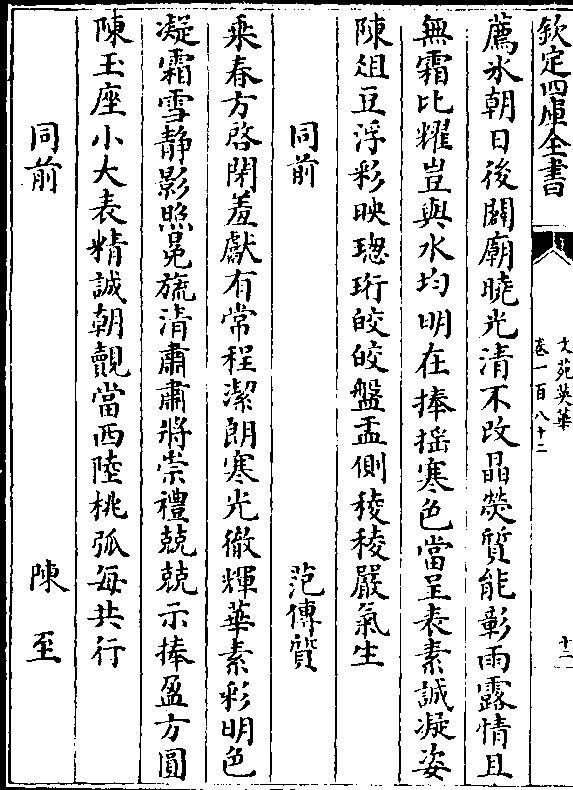 欽定四庫全書
文苑英華
卷一百八十二
十二
薦氷朝日後闢廟曉光清不改晶熒質能彰雨露情且
無霜比耀豈與水均明在捧揺寒色當呈表素誠凝姿
陳俎豆浮彩映璁珩皎皎盤盂側稜稜嚴氣生
同前
范傳質
乗春方啓閉羞獻有常程潔朗寒光徹輝華素彩明色
凝霜雪静影照冕旒清肅肅將崇禮兢兢示捧盈方圓
陳玉座小大表精誠朝覿當西陸桃弧每共行
同前
陳至